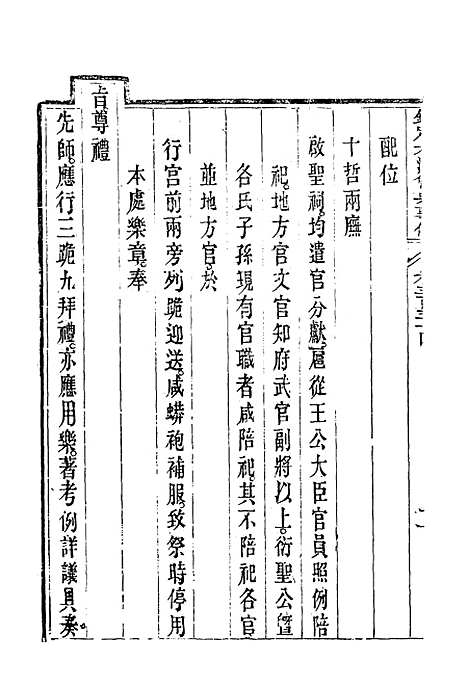 配位
十哲兩廡
啟聖祠。均遣官分獻。扈從王公大臣官員照例陪
祀。地方官文官知府武官副將以上。衍聖公暨
各氏子孫現有官職者咸陪祀。其不陪祀各官
並地方官。於
行宮前兩旁列跪迎送。咸蟒袍補服。致祭時停用
本處樂章。奉
旨尊禮
先師。應行三跪九拜禮。亦應用樂。著考例詳議具奏。